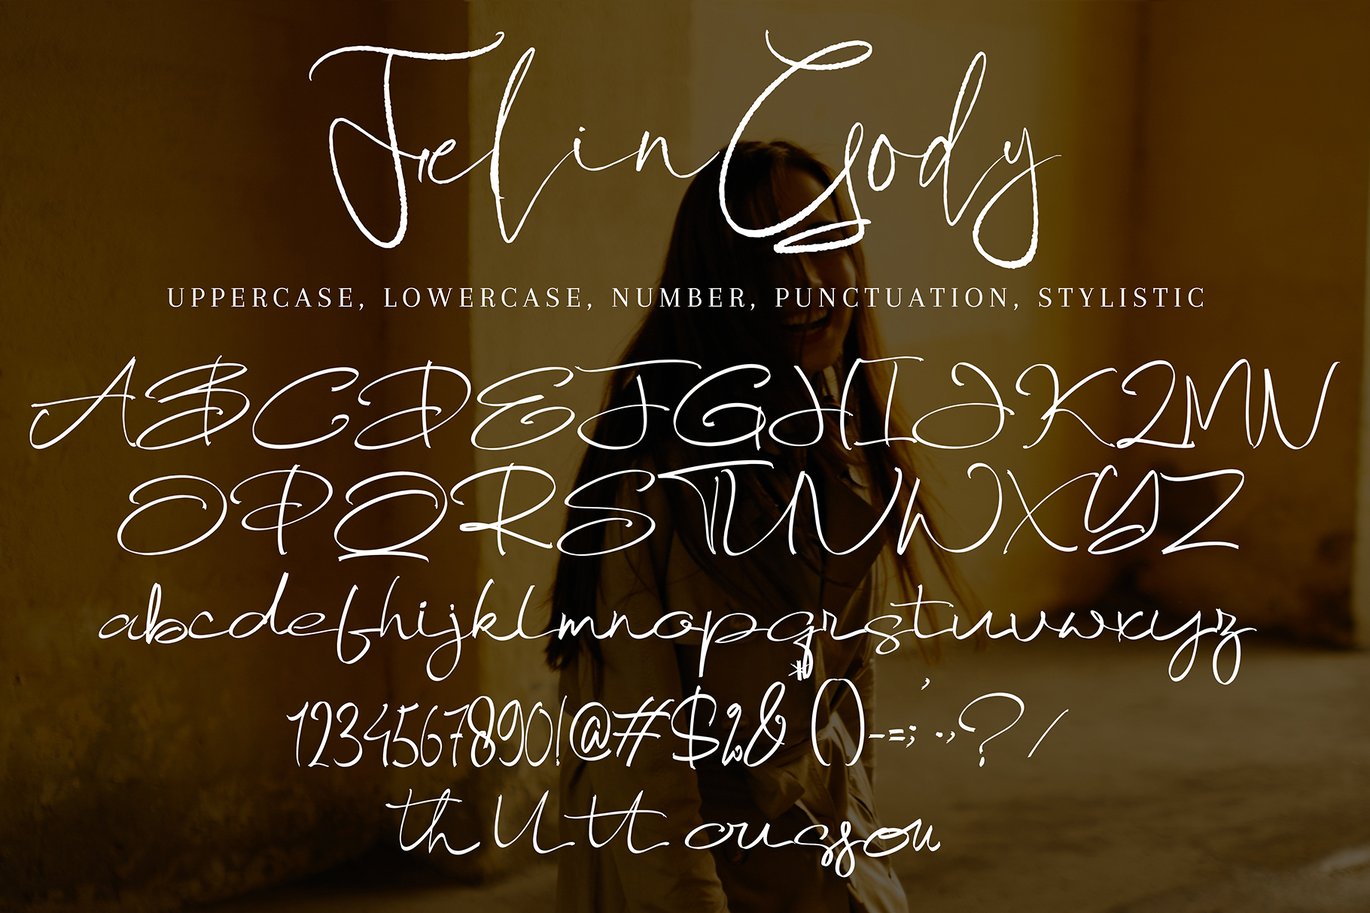 Felin Gody
UPPERCASE, LOWERCASE, NUMBER, PUNCTUATION, STYLISTIC
ABCDEFGHIJKLMN
OPQRSTUVWXYZ
abcdefhijklmnopqrstuvwxyz
1234567890!@#$%& ()-=;'.,?/
th ll tt or us ss ou